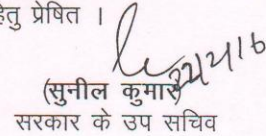 हेतु प्रेषित ।
(सुनील कुमार)
सरकार के उप सचिव